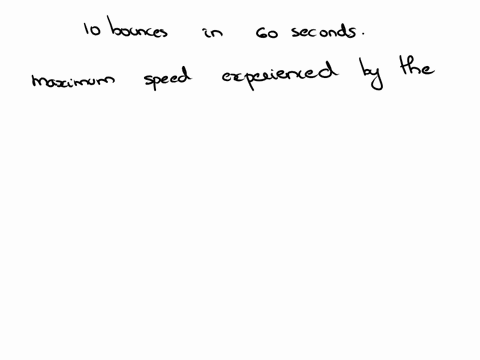 10 bounces in 60 seconds.
maximum speed experienced by the